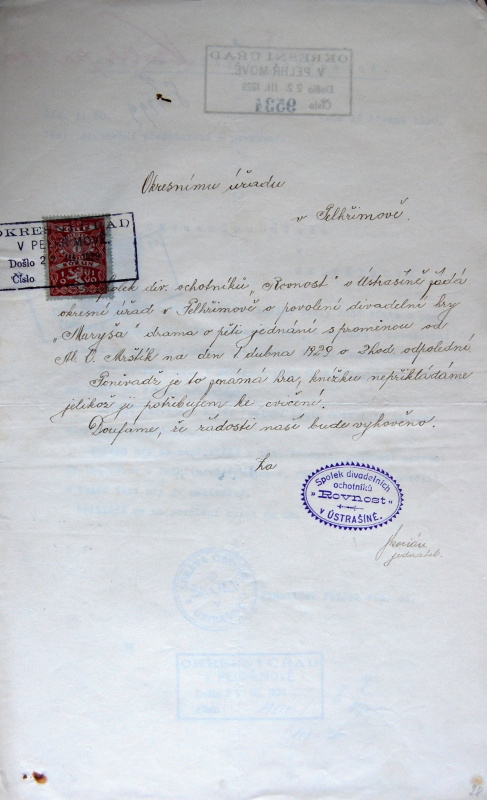 OKRESNÍ ÚŘAD
V PELHŘIMOVĚ
Došlo 22. III. 1929
Číslo 9534
Okresnímu úřadu
v Pelhřimově.
OKRESNÍ ÚŘAD
V PELHŘIMOVĚ
Došlo 2
Číslo
Spolek div. ochotníků „Rovnost" v Ústrašíně žádá
okresní úřad v Pelhřimově o povolení divadelní hry
„Maryša" drama o pěti jednání s proměnou od
Al. V. Mrštík na den 1 dubna 1929 o 2 hod. odpoledni.
Poněvadž je to známá hra, knížku nepřikládáme
jelikož ji potřebujem ke cvičení.
Doufáme, že žádosti naší bude vyhověno.
Za
Spolek divadelních
ochotníků
„Rovnost"
v ÚSTRAŠÍNĚ.
jednatel.
OKRESNÍ ÚŘAD